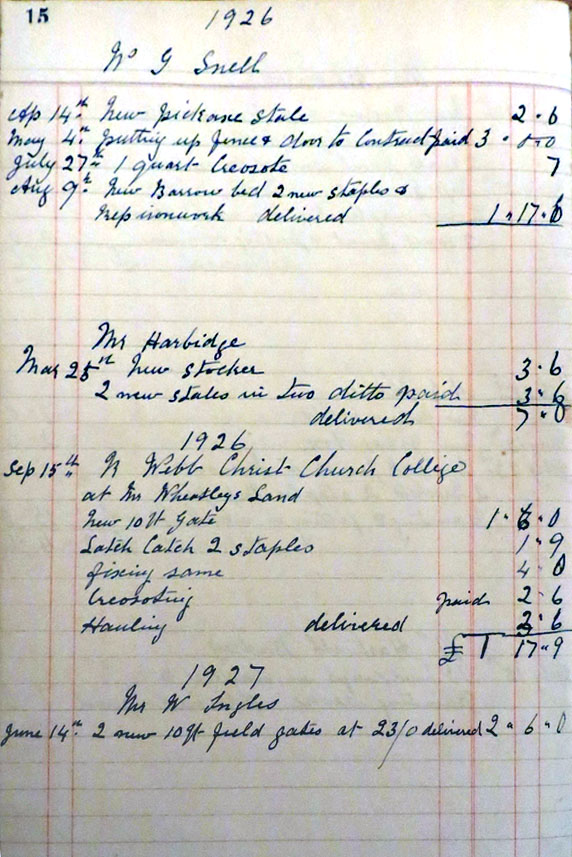 15
1926
Mr G Snell
Ap 14th New pickaxe stale 2.6
May 4th putting up fence & door to Contract paid 3.0.0
July 27th 1 quart Creosote 7
Aug 9th New Barrow bed 2 new staples &
rep ironwork delivered 1"17.6
Mr Harbidge
Mar 25th New stocker 3.6
2 new stales in two ditto paid 3.6
delivered 7"0
1926
Sep 15th Webb Christ Church College
at Mr Wheatleys Land
New 10ft Gate 1"6.0
Latch Catch 2 staples 1"9
fixing same 4.0
Creosoting paid 2.6
Hauling delivered 2.6
£1 17"9
1927
Mr W Ingles
June 14th 2 new 10ft field gates at 23/0 delivered 2"6"0